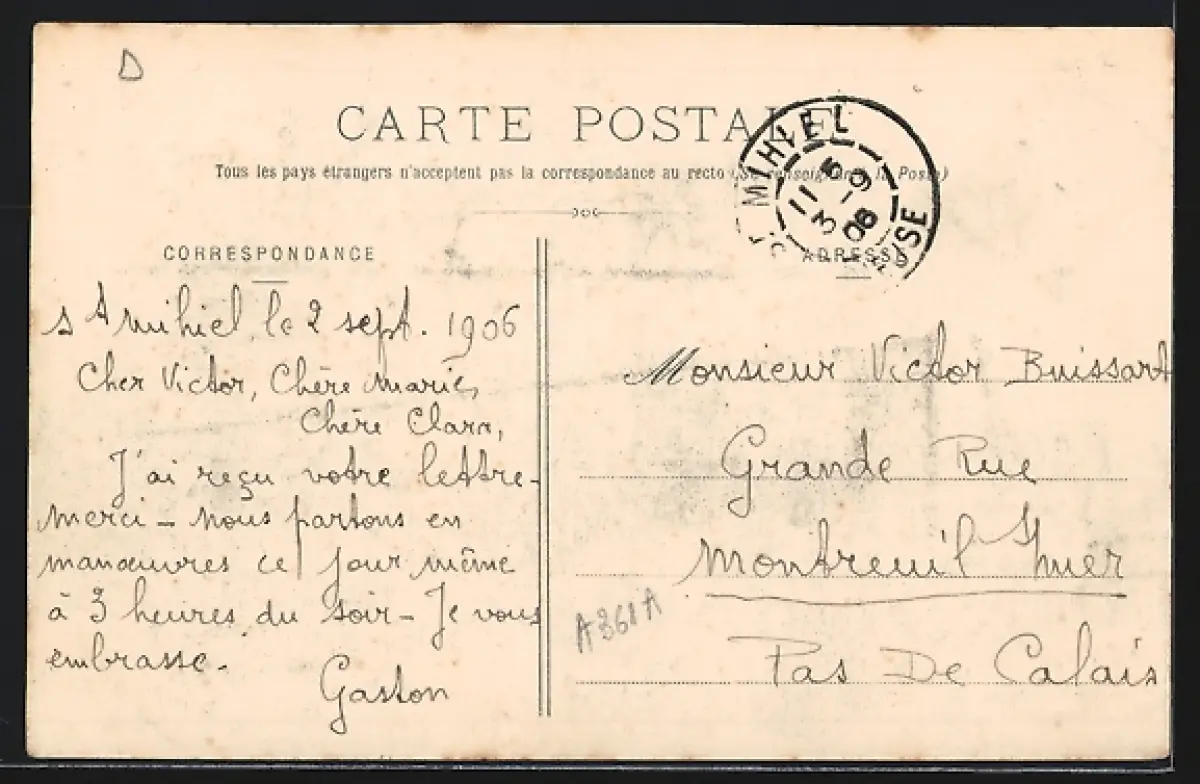 D
CARTE POSTALE
Tous les pays étrangers n'acceptent pas la correspondance au recto (Se renseigner à la Poste)
ST MIHIEL
11 5
3 -9
06
MEUSE
CORRESPONDANCE
ADRESSE
St Mihiel, le 2 sept. 1906
Cher Victor, Chère Marie,
Chère Clara,
J'ai reçu votre lettre -
merci - nous partons en
manœuvres ce jour même
à 3 heures du soir - Je vous
embrasse.
Gaston
Monsieur Victor Buissart
Grande Rue
Montreuil s/ mer
Pas De Calais
A361A